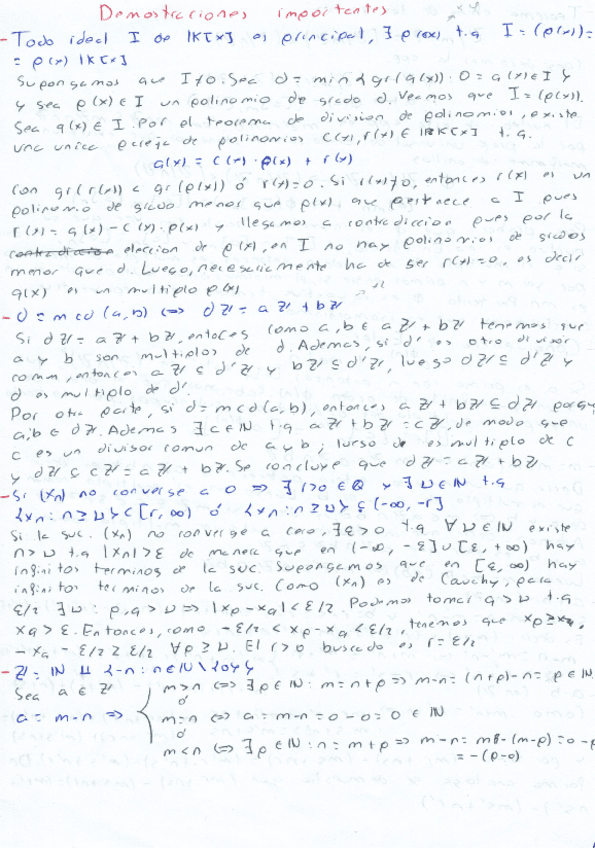 Demostraciones importantes
- Todo ideal I de IK[x] es principal, ∃ p(x) t.q I = (p(x)) =
= p(x) IK[x]
Supongamos que I≠0. Sea d = min {gr(q(x)): 0 = q(x) ∈ I y
y sea p(x) ∈ I un polinomio de grado d. Veamos que I = (p(x)).
Sea q(x) ∈ I. Por el teorema de division de polinomios, existe
una unica pareja de polinomios c(x), r(x) ∈ IK[x] t.q.
q(x) = c(x)·p(x) + r(x)
con gr(r(x)) < gr(p(x)) ó r(x)=0. Si r(x)≠0, entonces r(x) es un
polinomio de grado menor que p(x) que pertenece a I pues
r(x) = q(x) - c(x)·p(x) y llegamos a contradiccion pues por la
eleccion de p(x), en I no hay polinomios de grados
menor que d. Luego, necesariamente ha de ser r(x)=0, es decir
q(x) es un multiplo p(x)
- d = mcd(a,b) <=> dℤ = aℤ + bℤ
Si dℤ = aℤ + bℤ, entoces como a,b ∈ aℤ + bℤ tenemos que
a y b son multiplos de d. Ademas, si d' es otro divisor
comun, entonces aℤ ⊆ d'ℤ y bℤ ⊆ d'ℤ, luego dℤ ⊆ d'ℤ y
d es multiplo de d'.
Por otra parte, si d = mcd(a,b), entonces aℤ + bℤ ⊆ dℤ porque
a,b ∈ dℤ. Ademas ∃ c ∈ IN t.q aℤ + bℤ = cℤ, de modo que
c es un divisor comun de a y b; luego d es multiplo de c
y dℤ ⊆ cℤ = aℤ + bℤ. Se concluye que dℤ = aℤ + bℤ
- Si (xn) no converge a 0 => ∃ r>0 ∈ ℚ y ∃ ν ∈ IN t.q
{xn : n ≥ ν} ⊂ [r, ∞) ó {xn : n ≥ ν} ⊆ (-∞, -r]
Si la suc. (xn) no converge a cero, ∃ ε > 0 t.q ∀ ν ∈ IN existe
n > ν t.q |xn| > ε de manera que en (-∞, -ε] ∪ [ε, +∞) hay
infinitos terminos de la suc. Supongamos que en [ε, ∞) hay
infinitos terminos de la suc. Como (xn) es de Cauchy, para
ε/2 ∃ ν : p,q > ν => |xp - xq| < ε/2. Podemos tomar q > ν t.q
xq > ε. Entonces, como -ε/2 < xp - xq < ε/2, tenemos que xp ≥ xq
- ε/2 ≥ ε/2 ∀ p ≥ ν. El r>0 buscado es r = ε/2
- ℤ = IN ⊔ {-n : n ∈ IN \ {0}}
Sea a ∈ ℤ
a = m-n =>
m>n <=> ∃ p ∈ IN : m = n+p => m-n = (n+p)-n = p ∈ IN
ó
m=n <=> a = m-n = 0-0 = 0 ∈ IN
ó
m<n <=> ∃ p ∈ IN : n = m+p => m-n =
= -(p-0)